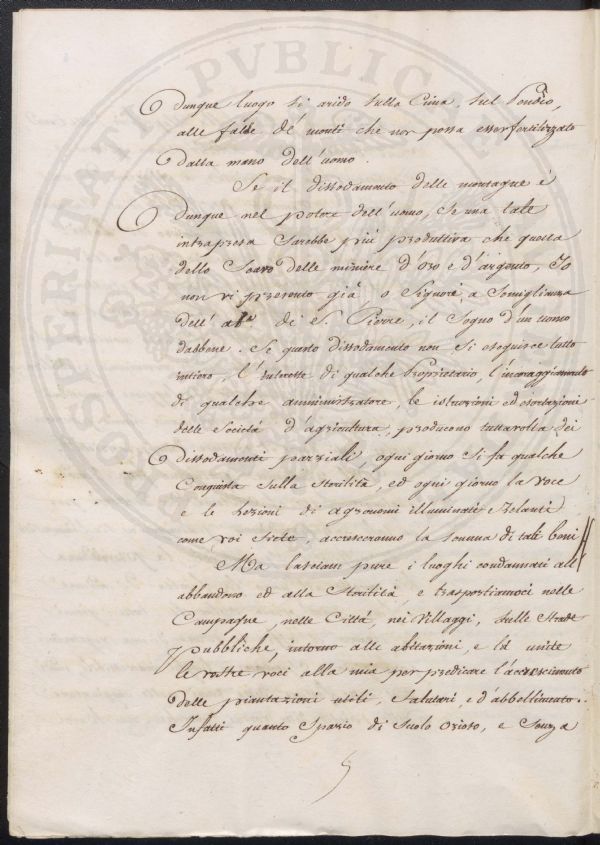 Dunque luogo sì arido sulla Cima, sul Pendio,
alle falde de' monti che non possa esser fertilizzato
dalla mano dell'uomo.
Se il dissodamento delle montagne è
dunque nel potere dell'uomo, se una tale
intrapresa sarebbe più produttiva che quella
dello Scavo delle miniere d'oro e d'argento, Io
non vi presento già, o Signori, a Somiglianza
dell' ab.e di S. Pierre, il Sogno d'un uomo
dabbene. Se questo dissodamento non si eseguisce tutto
intiero, l'interesse di qualche Proprietario, l'incoraggiamento
di qualche amministratore, le istruzioni ed esortazioni
delle Società d'agricultura, producono tuttavolta dei
dissodamenti parziali, ogni giorno si fa qualche
Conquista sulla Sterilità, ed ogni giorno la voce
e le lezioni di agronomi illuminati e zelanti
come voi siete, accresceranno la somma di tali beni
Ma lasciam pure i luoghi condannati all'
abbandono ed alla Sterilità, e trasportiamoci nelle
Campagne, nelle Città, nei Villaggi, sulle Strade
pubbliche, intorno alle abitazioni, e là unite
le vostre voci alla mia per predicare l'accrescimento
delle piantazioni utili, Salutari, e d'abbellimento..
Infatti quanto Spazio di Suolo ozioso, e Senza
PROSPERITATI PVBLICAE